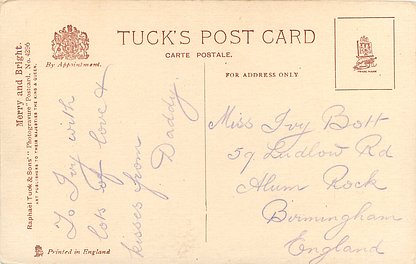 TUCK'S POST CARD
CARTE POSTALE.
FOR ADDRESS ONLY
By Appointment.
Merry and Bright.
Raphael Tuck & Sons' "Photogravure" Postcard, No. 4295
ART PUBLISHERS TO THEIR MAJESTIES THE KING & QUEEN.
Printed in England
To Ivy with
lots of love &
kisses from
Daddy.
Miss Ivy Bott
59 Ludlow Rd
Alum Rock
Birmingham
England